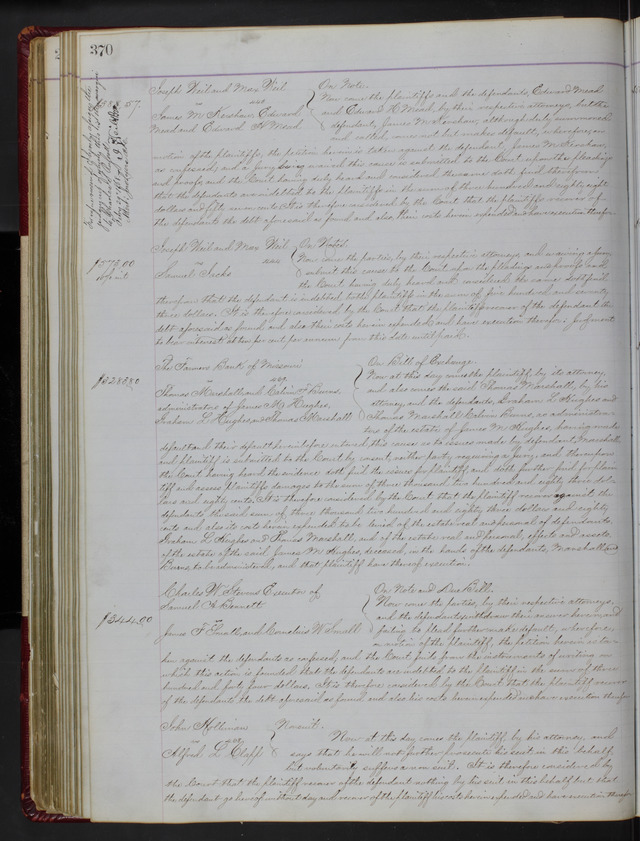 370
Joseph Weil and Max Weil
vs
James M Kershaw Edward
Mead and Edward H Mead
On Note.
Now come the plaintiffs and the defendants, Edward Mead
and Edward H Mead, by their respective attorneys, but the
defendant, James M Kershaw, although duly summoned
and called, comes not but makes default, wherefore, on
motion of the plaintiffs, the petition herein is taken against the defendant, James M Kershaw,
as confessed; and a jury being waived this cause is submitted to the Court upon the pleadings
and proofs, and the Court having duly heard and considered the same doth find therefrom
that the defendants are indebted to the plaintiffs in the sum of three hundred and eighty eight
dollars and fifty seven cents. It is therefore considered by the Court that the plaintiffs recover of
the defendants the debt aforesaid as found and also their costs herein expended and have execution therefor.
$575.00
Joseph Weil and Max Weil
vs
Samuel Sachs
On Note.
Now come the parties, by their respective attorneys, and waiving a jury
submit this cause to the Court upon the pleadings and proofs and
the Court having duly heard and considered the same doth find
therefrom that the defendant is indebted to the plaintiff in the sum of five hundred and seventy
three dollars. It is therefore considered by the Court that the plaintiffs recover of the defendant the
debt aforesaid as found and also their costs herein expended and have execution therefor. Judgment
to bear interest at ten per cent per annum from this date until paid.
$3283.80
The Farmers Bank of Missouri
vs
Thomas Marshall and Calvin F Burns,
administrators of James M Hughes,
Graham L Hughes and Thomas Marshall
On Bill of Exchange.
Now at this day comes the plaintiff, by its attorney,
and also comes the said Thomas Marshall, by his
attorney and the defendants, Graham L Hughes and
Thomas Marshall Calvin Burns, as administra-
tors of the estate of James M Hughes, having made
default and their default herein before entered, this cause as to issues made by defendant, Marshall
and plaintiff is submitted to the Court by consent, neither party requiring a jury, and thereupon
the Court having heard the evidence doth find the issues for plaintiff and doth further find for plain
tiff and assess plaintiffs damages to the sum of three thousand two hundred and eighty three dol
lars and eighty cents. It is therefore considered by the Court that the plaintiff recover against the
defendants the said sum of three thousand two hundred and eighty three dollars and eighty
cents and also its costs herein expended to be levied of the estate real and personal of defendants,
Graham L Hughes and Thomas Marshall, and of the estate, real and personal, effects and assets
of the estate of the said James M Hughes, deceased, in the hands of the defendants, Marshall and
Burns, to be administered, and that plaintiff have thereof execution.
$344.00
Charles W Stevens Executor of
Samuel A Bennett
vs
James F Small, and Cornelius W Small
On Note and Due Bill.
Now come the parties, by their respective attorneys,
and the defendants withdraw their answer herein and
failing to plead further make default, wherefore,
on motion of the plaintiff, the petition herein is ta-
ken against the defendants as confessed, and the Court find from the instruments of writing on
which this action is founded that the defendants are indebted to the plaintiff in the sum of three
hundred and forty four dollars. It is therefore considered by the Court that the plaintiff recover
of the defendants the debt aforesaid as found and also his costs herein expended and have execution therefor.
John Holliman
vs
Alfred L Clapp
Nonsuit.
Now at this day comes the plaintiff, by his attorney, and
says that he will not further prosecute his suit in this behalf,
but voluntarily suffers a non suit. It is therefore considered by
the Court that the plaintiff recover of the defendant nothing by his suit in this behalf but that
the defendant go hence without day and recover of the plaintiff his costs herein expended and have execution therefor.